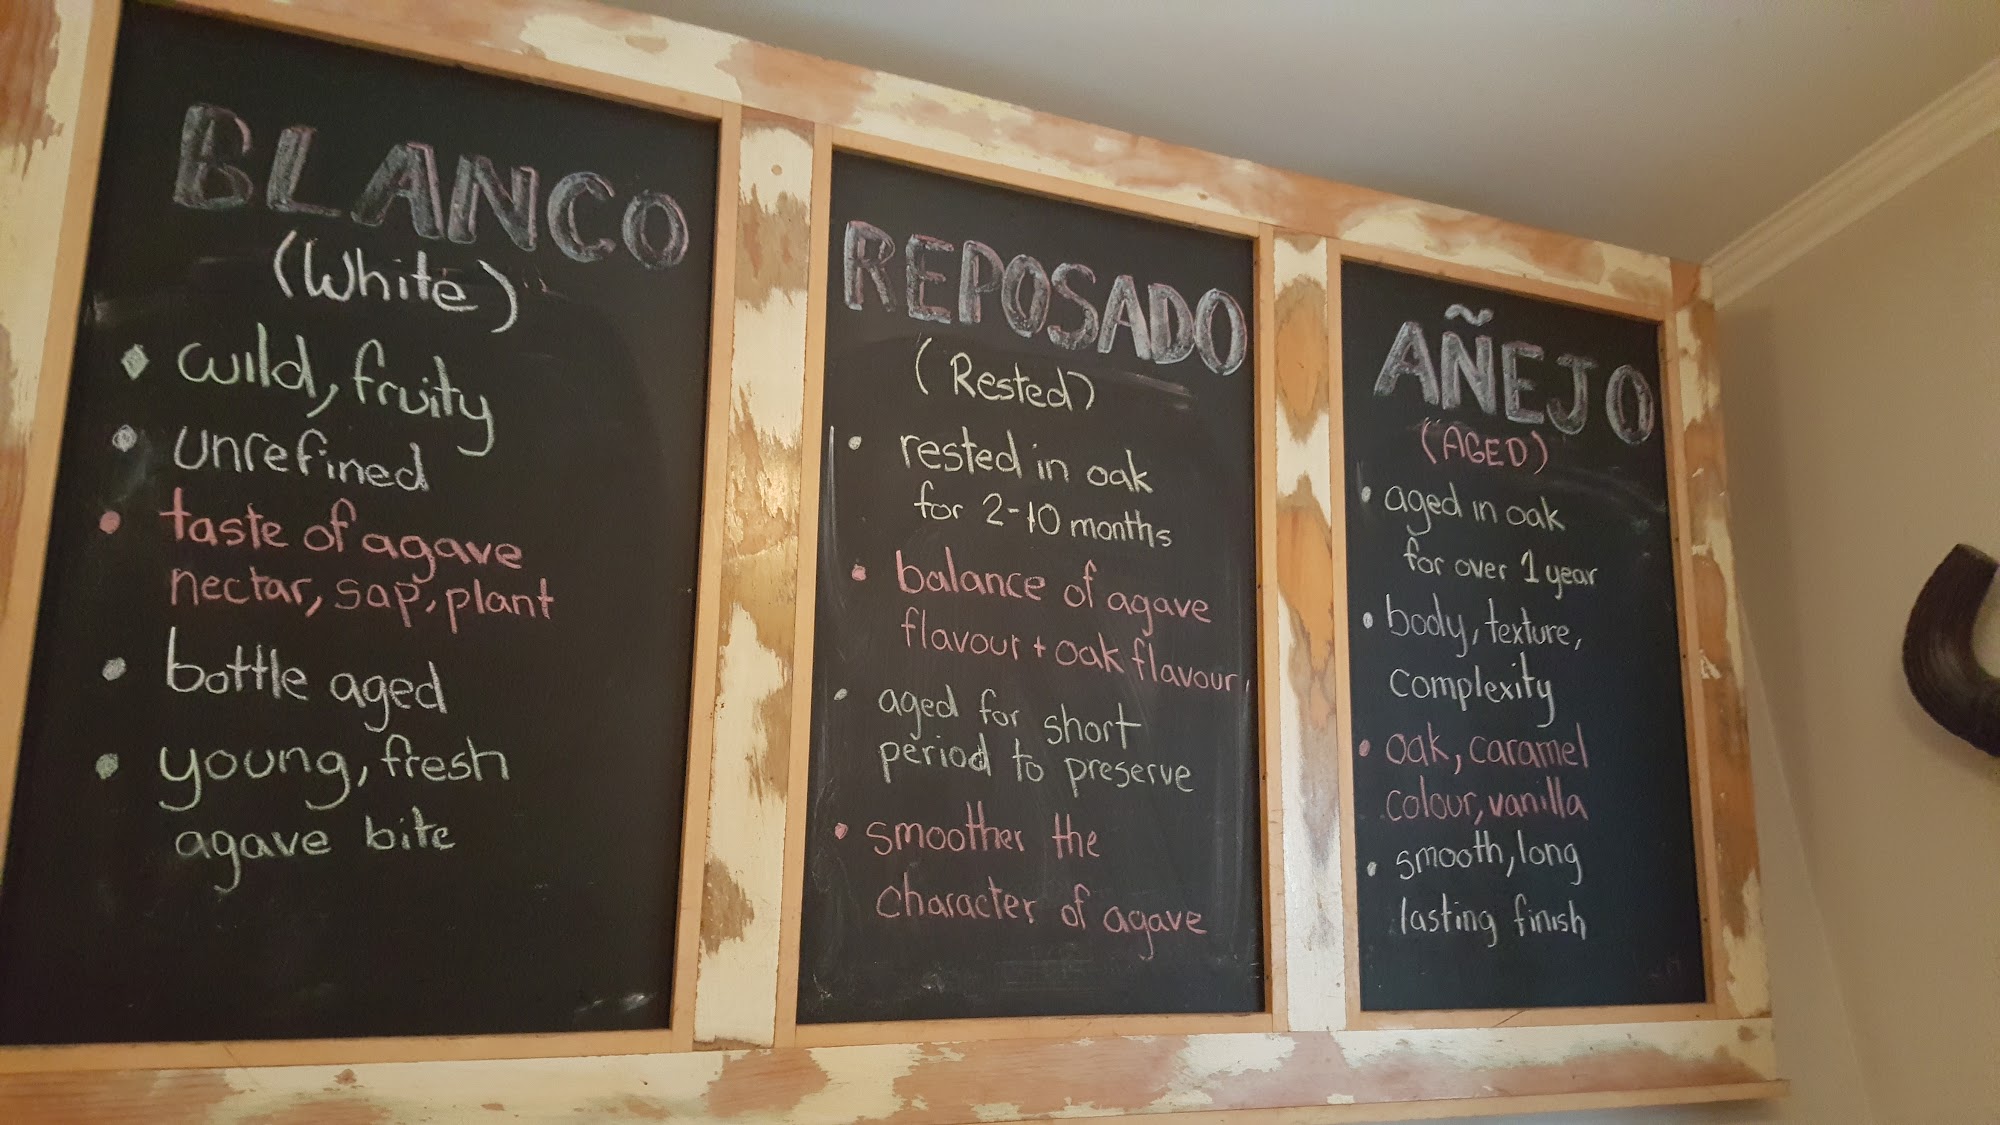 BLANCO
(White)
• wild, fruity
• unrefined
• taste of agave
nectar, sap, plant
• bottle aged
• young, fresh
agave bite
REPOSADO
(Rested)
• rested in oak
for 2-10 months
• balance of agave
flavour + oak flavour,
• aged for short
period to preserve
• smoother the
character of agave
AÑEJO
(AGED)
• aged in oak
for over 1 year
• body, texture,
complexity
• oak, caramel
colour, vanilla
• smooth, long
lasting finish